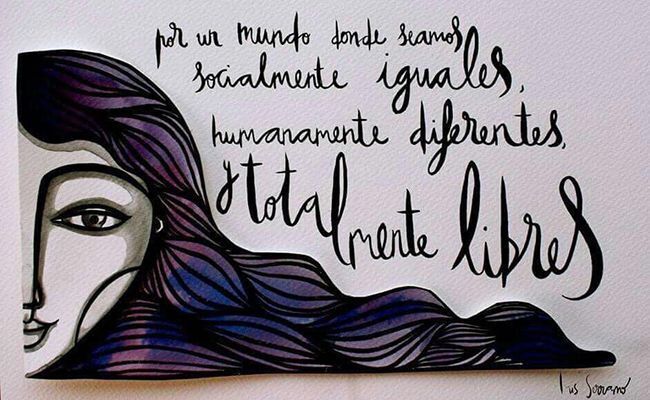 por un mundo donde seamos
socialmente iguales,
humanamente diferentes,
y totalmente libres
Iris Serrano